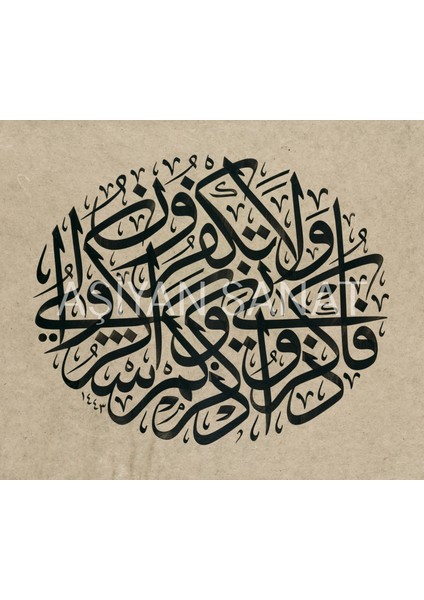 فاذكروني أذكركم واشكروا لي ولا تكفرون
١٤٤٣
AŞİYAN SANAT